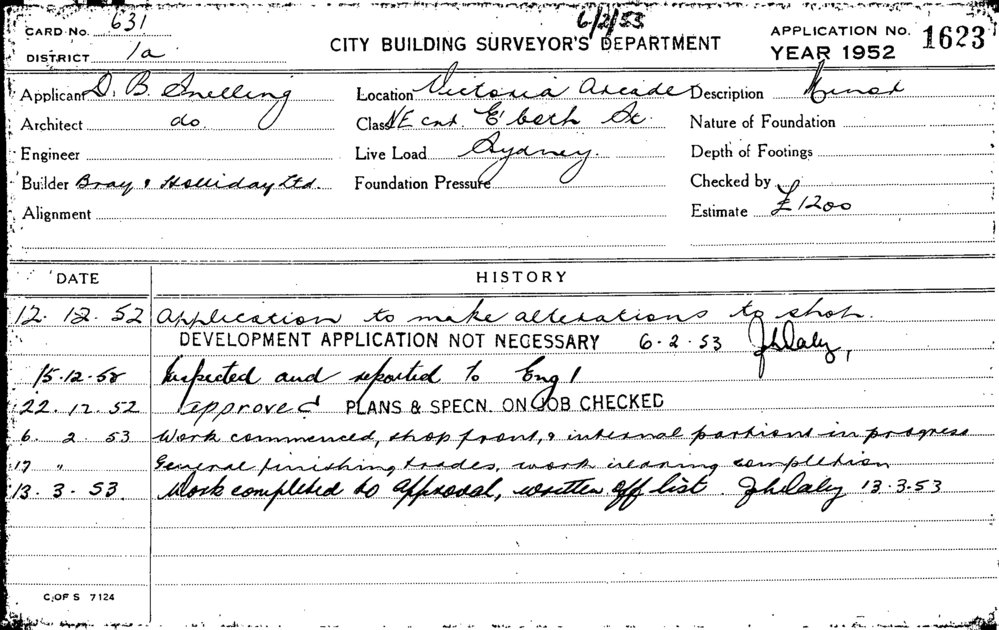 CARD No. 631
6/2/53
DISTRICT 1a
CITY BUILDING SURVEYOR'S DEPARTMENT
APPLICATION No. 1623
YEAR 1952
Applicant D. B. Snelling
Location Victoria Arcade
Description Minor
Architect do.
Class NE cnr. E'beth St.
Nature of Foundation
Engineer
Live Load Sydney
Depth of Footings
Builder Bray & Holliday Ltd.
Foundation Pressure
Checked by
Alignment
Estimate £1200
DATE HISTORY
12. 12. 52 Application to make alterations to shop.
DEVELOPMENT APPLICATION NOT NECESSARY 6-2-53 JhDaly,
15.12.58 Inspected and reported to Eng!
22. 12. 52 approved PLANS & SPECN. ON JOB CHECKED
6. 2. 53 Work commenced, shop front, & internal in progress
17 " General finishing trades, work nearing completion
13. 3. 53 Work completed to approval, written off list. JhDaly 13.3.53
C. OF S 7124